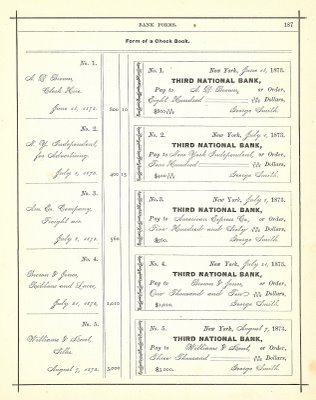 BANK FORMS. 187
Form of a Check Book.
No. 1.
A. D. Brown,
Clock Hair.
June 21, 1872. 800
No. 1. New York, June 21, 1873.
THIRD NATIONAL BANK,
Pay to A. D. Brown, or Order,
Eight Hundred Dollars,
George Smith.
No. 2.
N. Y. Independent,
for Advertising.
July 2, 1872. 400 15
No. 2. New York, July 2, 1873.
THIRD NATIONAL BANK,
Pay to New York Independent, or Order,
Four Hundred Dollars,
George Smith.
No. 3.
Am. Ex. Company,
Freight
July 8, 1872. 560
No. 3. New York, July 8, 1873.
THIRD NATIONAL BANK,
Pay to American Express Co., or Order,
Five Hundred and Sixty Dollars,
George Smith.
No. 4.
Brown & Jones,
Ribbons and Laces,
July 21, 1872. 1,010
No. 4. New York, July 21, 1873.
THIRD NATIONAL BANK,
Pay to Brown & Jones, or Order,
One Thousand and Ten Dollars,
George Smith.
No. 5.
Williams &
Silks.
August 7, 1872. 3,000
No. 5. New York, August 7, 1873.
THIRD NATIONAL BANK,
Pay to Williams & or Order,
Three Thousand Dollars,
$3000. George Smith.